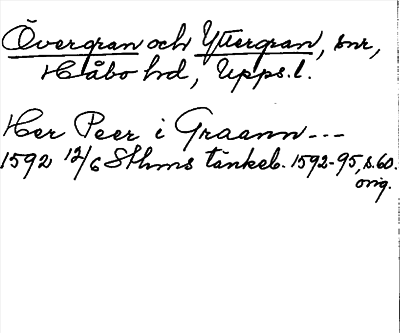 Övergran och Yttergran, snr,
Håbo hd, Upps. l.
Her Peer i Graann---
1592 12/6 Sthms tänkeb. 1592-95, s. 60.
orig.